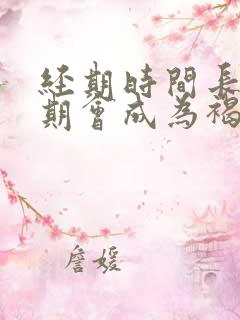 經期時間長
期會成為褐
詹媛